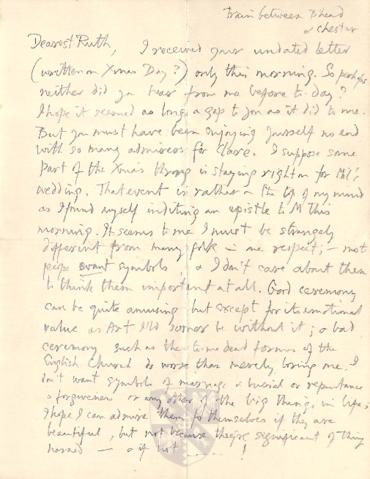 Train between B'head
& Chester
Dearest Ruth, I received your undated letter
(written on Xmas Day?) only this morning. So perhaps
neither did you hear from me before to-day?
I hope it seemed as long a gap to you as it did to me.
But you must have been enjoying yourself no end
with so many admirers for Clare. I suppose some
part of the Xmas throng is staying right on for
wedding. That event is rather on the top of my mind
as I find myself inditing an epistle to M this
morning. It seems to me I must be strangely
different from many folk in one respect; – most
people want symbols, & I don't care about them
to think them important at all. Good ceremony
can be quite amusing but except for its emotional
value as Art I'ld sooner be without it; a bad
ceremony such as the dead forms of the
English Church do worse than merely boring me. I
don't want symbols of marriage or burial or repentance
or forgiveness or any other of the big things in life;
I hope I can admire them for themselves if they are
beautiful, but not because they're significant of things
— & if not !